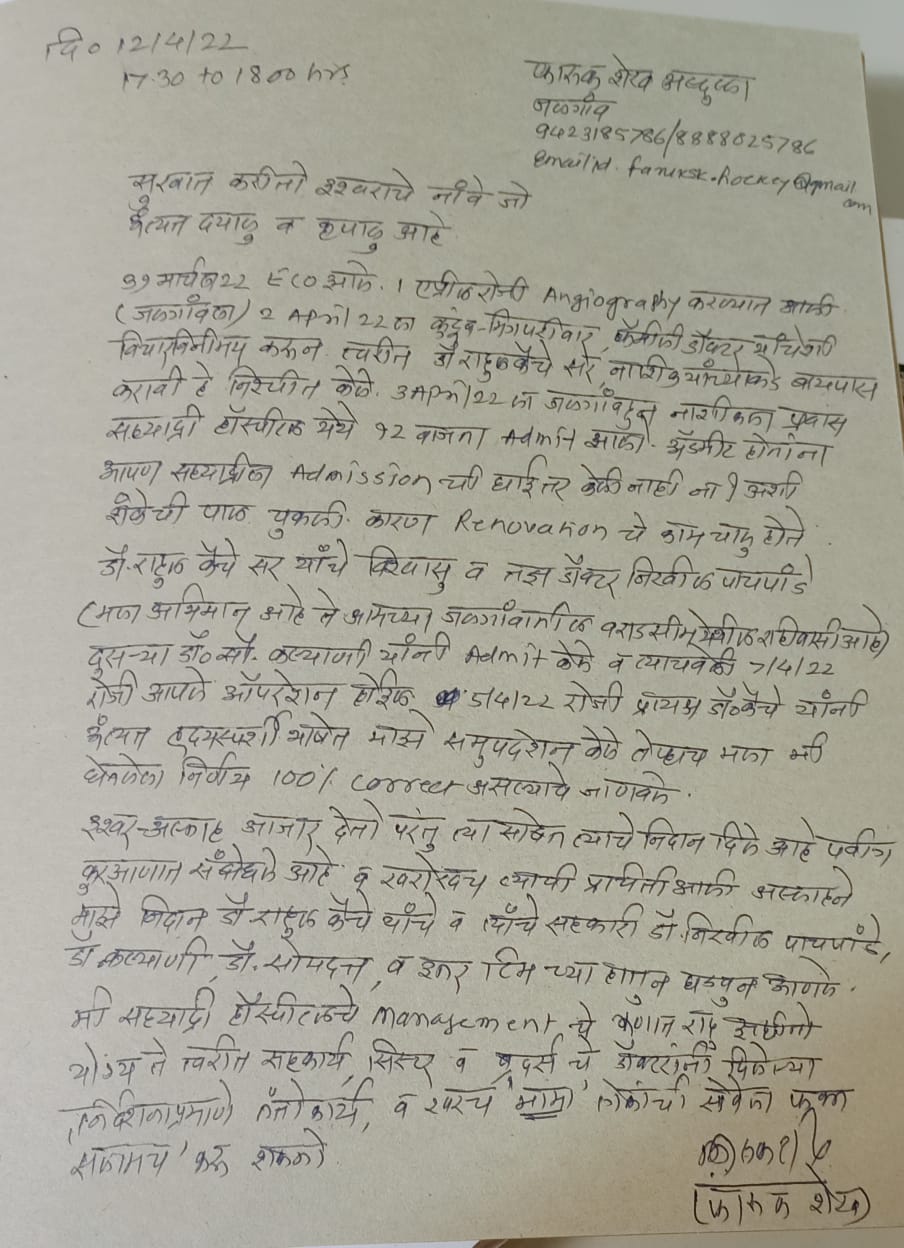 दि० 12/4/22
17.30 to 1800 hrs
फारुक शेख अब्दुल्ला
जळगांव
9423185786/8888025786
email id. faruksk.hockey@gmail.com
सुरवात करीतो इश्वराचे नांवे जो
अँत्यत दयाळु व कृपाळु आहे.
३१ मार्च २२ ECO झाले. 1 एप्रील रोजी Angiography करण्यात आली
(जळगाँवला) 2 April 22 ला कुटुंब-मित्रपरीवार, फॅमीली डॉक्टर यांचेशी
विचारविनीमय करून त्वरीत डॉ राहुल कैचे सर, नाशिक यांच्याकडे बायपास
करावी हे निश्चीत केले. 3 April 22 ला जळगाँवहुन नाशीकला प्रवास
सह्याद्री हॉस्पीटल येथे १२ वाजता Admit झालो. अ‍ॅडमीट होतांना
आपण सह्याद्रीला Admission ची घाई तर केली नाही ना? अशी
शँकेची पाल चुकली. कारण Renovation चे काम चालु होते.
डॉ. राहुल कैचे सर यांचे विश्वासु व तज्ञ डॉक्टर निखील पाचपांडे
(मला अभिमान आहे ते आमच्या जळगांवातील वराडसीम येथील रहिवासी आहे)
दुसऱ्या डॉ० सौ. कल्याणी यांनी Admit केले व त्याचवेळी 7/4/22
रोजी आपले ऑपरेशन होईल 5/4/22 रोजी प्रत्यक्ष डॉ० कैचे यांनी
अँत्यत ह्रदयस्पर्शी भाषेत माझे समुपदेशन केले तेव्हाच मला मी
घेतलेला निर्णय 100% correct असल्याचे जाणवले.
इश्वर-अल्लाह आजार देतो परंतु त्या सोबत त्याचे निदान दिले आहे पवीत्र
कुरआणात आहे व खरोखरच त्याची प्रचिती आली अल्लाहने
माझे निदान डॉ राहुल कैचे यांचे व त्यांचे सहकारी डॉ. निखील पाचपांडे,
डॉ कल्याणी, डॉ. सोमदत्त, व इतर टिम च्या हातुन घडवुन आणले.
मी सह्याद्री हॉस्पीटलचे management चे ऋुणात राहु इच्छीतो
योग्य ते त्वरीत सहकार्य, सिस्टर व ब्रदर्स चे डॉक्टरांनी दिलेल्या
निर्देशाप्रमाणे तँतो कार्य, व खरचं 'मामा' लोकांची सेवेला फक्त
सलामच' करू शकतो.
(फारुक शेख)